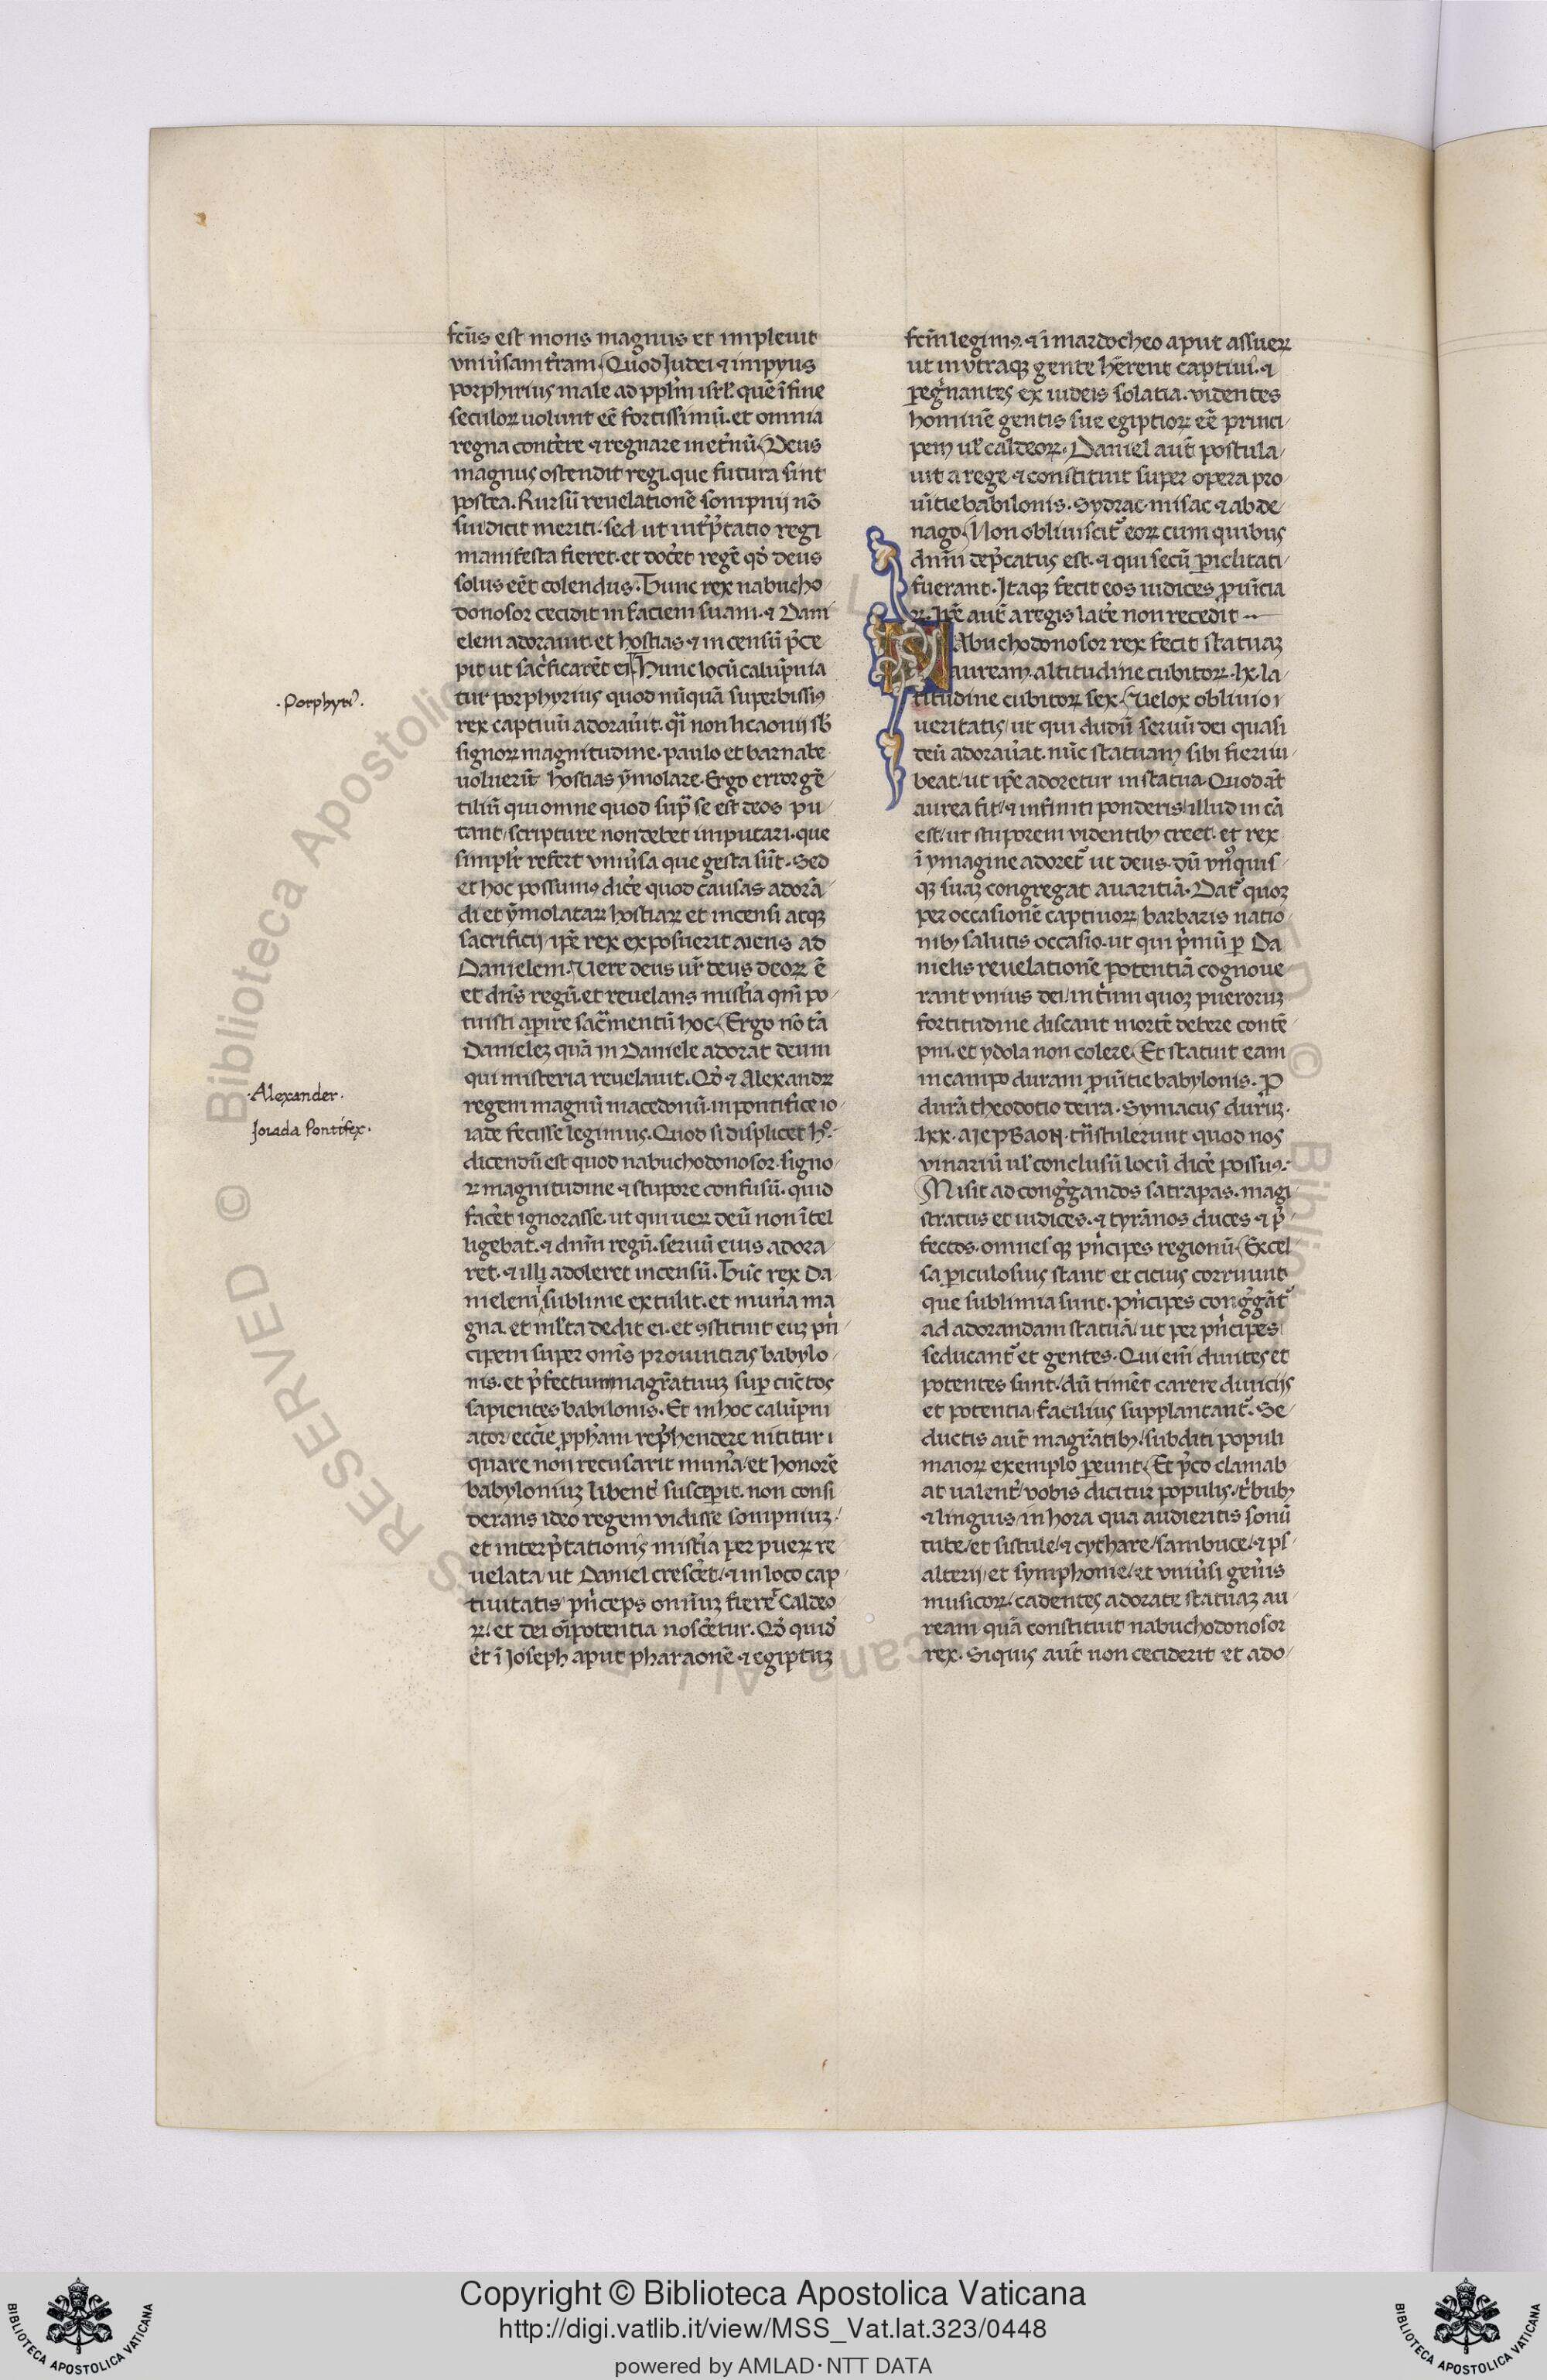 fcũs est mons magnus et impleuit
vniũsam t̃ram. Quod Judei ⁊ impyus
porphirius male ad pplm̃ isrl̃. quẽ ĩ fine
seculoꝝ uolunt eẽ fortissimũ. et omnia
regna contẽre ⁊ regnare in et̃nũ. Deus
magnus ostendit regi. que futura sint
postea. Rursũ reuelationẽ sompnij nõ
sui dicit meriti. sed ut int̃p̃tatio regi
manifesta fieret. et docẽt regẽ qđ deus
solus eẽt colendus. Hunc rex nabucho
donosor cecidit in faciem suam. ⁊ Dani
elem adorauit. et hostias ⁊ incensũ p̃ce
pit ut sac̃ficarẽt ei. Hunc locũ calũpnia
tur porphyrius quod nũquã superbissiꝰ
rex captiuũ adorauĩt. q̃i non licaonij ob̃
signoꝝ magnitudine. paulo et barnabe
uoluerũt hostias ỹmolare. Ergo error gẽ
tiliũ qui omne quod sup̃ se est deos pu
tant/ scripture non debet imputari. que
simplr̃ refert vniũsa que gesta sũt. Sed
et hoc possumꝰ dicẽ quod causas adorã
di et ỹmolataꝝ hostiaꝝ et incensi atqꝫ
sacrificij/ ip̃e rex exposuerit aiens ad
Danielem. Vere deus ur̃ deus deoꝝ ẽ
et dñs regũ. et reuelans mist̃ia qm̃ po
tuisti apire sac̃mentũ hoc. Ergo nõ tã
Danielẽ quã in Daniele adorat deum
qui misteria reuelauit. Qđ ⁊ Alexandꝝ
regem magnũ macedonũ. in pontifice io
iade fecisse legimus. Quod si displicet hº.
dicendũ est quod nabuchodonosor. signo
ꝝ magnitudine ⁊ stupore confusũ. quid
facẽt ignorasse. ut qui ueꝝ deũ non ĩtel
ligebat. ⁊ dnm̃ regũ. seruũ eius adora
ret. ⁊ illi adoleret incensũ. Tũc rex Da
nielem sublime extulit. et muña ma
gna. et ml̃ta dedit ei. et ꝯstituit eũ pñ
cipem super om̃s prouintias babylo
nis. et p̃fectum mag̃ratuũ sup cũctos
sapientes babilonis. Et in hoc calũpni
ator ecclie ꝓphãm rep̃hendere nititur ı
quare non recusarit muña/ et honorẽ
babyloniuꝫ libent̃ susceperit. non consi
derans ideo regem vidisse sompniuꝫ.
et interp̃tationis mist̃ia per pueꝝ re
uelata/ ut Daniel crescẽt/ ⁊ in loco cap
tiuitatis pñceps omniuꝫ fieret Caldeo
ꝝ. et dei oĩpotentia noscẽtur. Qđ quid̃
ẽt ĩ Joseph aput pharaonẽ ⁊ egiptuꝫ
·Porphyriꝰ·
·Alexander·
Joiada Pontifex·
fcm̃ legimꝰ. ⁊ ĩ mardocheo aput assueꝝ
ut in vtraqꝫ gente hẽrent captiui. ⁊
pegñantes ex iudeis solatia. videntes
hominẽ gentis sue egiptioꝝ eẽ princi
pem ul̃ caldeoꝝ. Daniel aut̃ postula
uit a rege ⁊ constituit super opera pro
uĩtie babilonis. Sydrac. misac ⁊ abde
nago. Non obliuiscit̃ eoꝝ cum quibus
dnm̃ dep̃catus est. ⁊ qui secũ piclitati
fuerant. Itaqꝫ fecit eos iudices prouĩcia
ꝝ. Ip̃e aut̃ a regis latẽ non recedit
NAbuchodonosor rex fecit statuaꝫ
auream. altitudine cubitoꝝ. lx. la
titudine cubitoꝝ sex. Velox obliuio ı
ueritatis/ ut qui dudũ seruũ dei quasi
deũ adorauĩat. nũc statuam sibi fieri iu
beat. ut ip̃e adoretur in statua. Quod at̃
aurea fit/ ⁊ infiniti ponderis/ illud in cã
est/ ut stuporem videntibꝰ creet. et rex
ĩ ymagine adoret̃ ut deus. dũ vnꝰquis
qꝫ suaꝫ congregat auaritiã. Dat̃ quoꝫ
per occasionẽ captiuoꝝ barbaris natio
nibꝰ salutis occasio. ut qui p̃mũ p Da
nielis reuelationẽ potentiã cognoue
rant vnius dei/ in t̃ium quoꝫ pueroruꝫ
fortitudine discant mortẽ debere contẽ
pni. et ydola non colere. Et statuit eam
in campo duram prouĩtie babylonis. P
durã theodotio deira. Symacus duruꝫ.
lxx. tñstulerunt quod nos
viuariũ ul̃ conclusũ locũ dicẽ possuꝰ.
Misit ad cong̃gandos satrapas. magi
stratus et iudices. ⁊ tyrãnos duces ⁊ p̃
fectos. omnesqꝫ pñcipes regionũ. Excel
sa piculosius stant et citius corruunt
que sublimia sunt. Pñcipes cong̃gãt̃
ad adorandam statuã/ ut per pñcipes
seducant̃ et gentes. Qui em̃ diuites et
potentes sunt. dũ timẽt carere diuicijs
et potentia facilius supplantant̃. Se
ductis aut̃ mag̃ratibꝰ/ subditi populi
maioꝝ exemplo peunt. Et p̃co clamab
at ualent̃/ vobis dicitur populis/ t̃bubꝰ
⁊ linguis/ in hora qua audieritis sonũ
tube/ et fistule/ ⁊ cythare/ sambuce/ ⁊ ps
alterij/ et symphonie/ et vniũsi geñis
musicoꝝ/ cadentes adorate statuaꝫ au
ream quã constituit nabuchodonosor
rex. Siquis aut̃ non ceciderit et ado
© Biblioteca Apostolica Vaticana ALL RIGHTS RESERVED
Copyright © Biblioteca Apostolica Vaticana
http://digi.vatlib.it/view/MSS_Vat.lat.323/0448
powered by AMLAD·NTT DATA
BIBLIOTECA APOSTOLICA VATICANA
BIBLIOTECA APOSTOLICA VATICANA